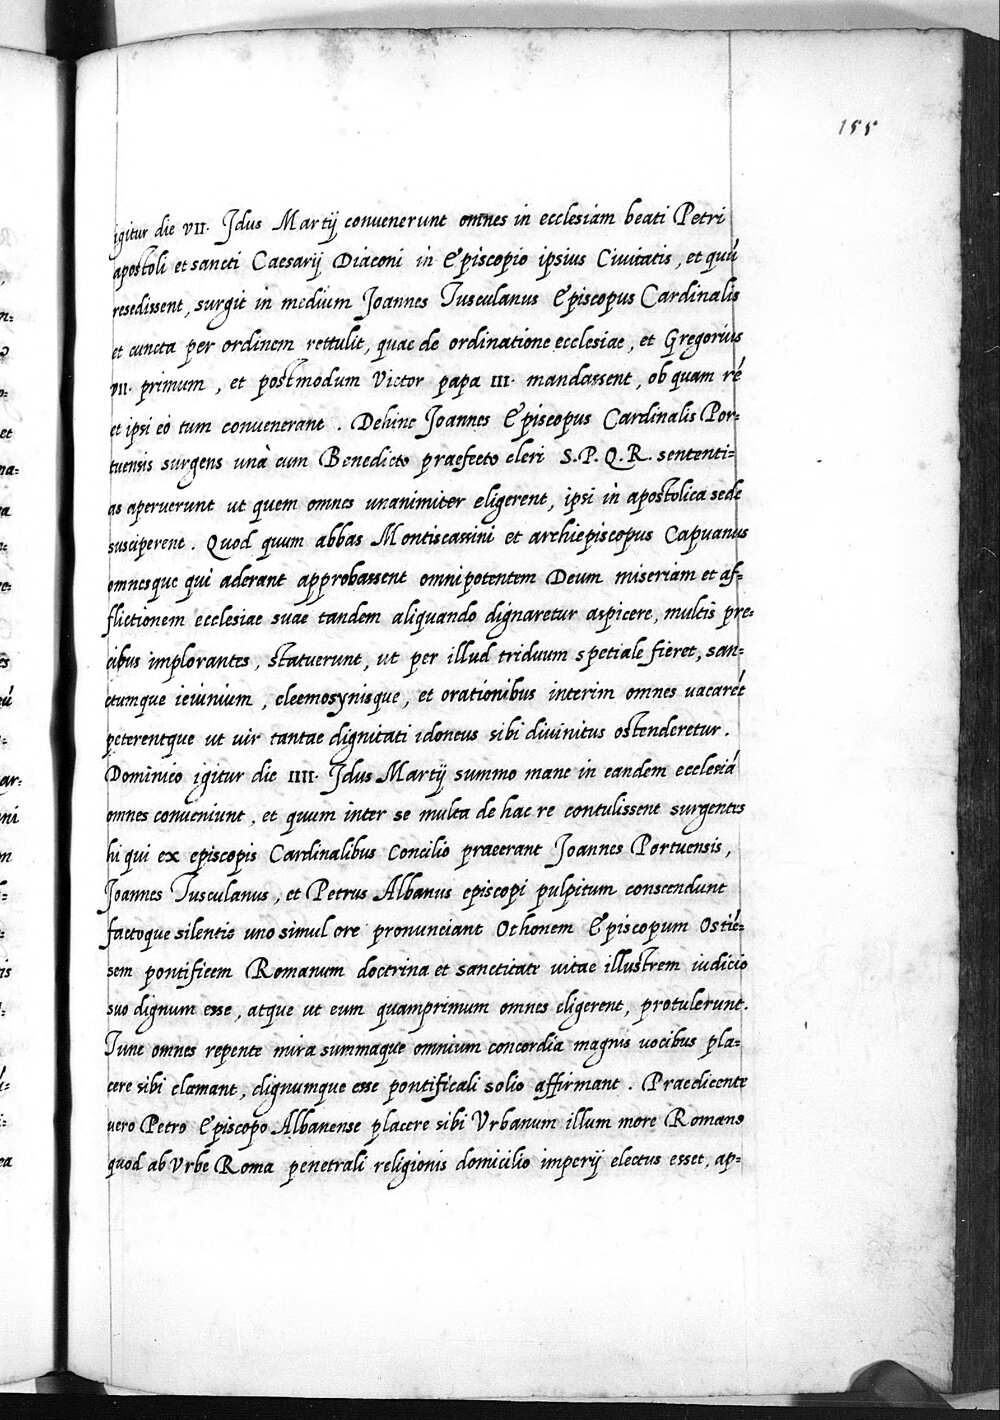 155
igitur die VII. Idus Martij convenerunt omnes in ecclesiam beati Petri
apostoli et sancti Caesarij Diaconi in Episcopio ipsius Civitatis, et quũ
resedissent, surgit in medium Joannes Tusculanus Episcopus Cardinalis
et cuncta per ordinem rettulit, quae de ordinatione ecclesiae, et Gregorius
VII. primum, et postmodum Victor papa III. mandassent, ob quam rẽ
et ipsi eò tum convenerant. Dehinc Joannes Episcopus Cardinalis Por=
tuensis surgens unà cum Benedicto praefecto cleri S.P.Q.R. sententi=
as aperuerunt ut quem omnes unanimiter eligerent, ipsi in apostolica sede
susciperent. Quod quum abbas Montiscassini et archiepiscopus Capuanus
omnesque qui aderant approbassent omnipotentem Deum miseriam et af=
flictionem ecclesiae suae tandem aliquando dignaretur aspicere, multis pre=
cibus implorantes, statuerunt, ut per illud triduum spetiale fieret, san=
ctumque ieiunium, eleemosynisque, et orationibus interim omnes uacarẽt
peterentque ut uir tantae dignitati idoneus sibi divinitus ostenderetur.
Dominico igitur die IIII. Idus Martij summo mane in eandem ecclesiã
omnes conveniunt, et quum inter se multa de hac re contulissent surgentes
hi qui ex episcopis Cardinalibus Concilio praeerant Joannes Portuensis,
Joannes Tusculanus, et Petrus Albanus episcopi pulpitum conscendunt
factoque silentio uno simul ore pronunciant Othonem Episcopum Ostiẽ=
sem pontificem Romanum doctrina et sanctitate uitae illustrem iudicio
suo dignum esse, atque ut eum quamprimum omnes eligerent, protulerunt.
Tunc omnes repente mira summaque omnium concordia magnis uocibus pla=
cere sibi clamant, dignumque esse pontificali solio affirmant. Praedicente
uero Petro Episcopo Albanense placere sibi Vrbanum illum more Romano
quod ab Vrbe Roma penetrali religionis domicilio imperij electus esset, ap=